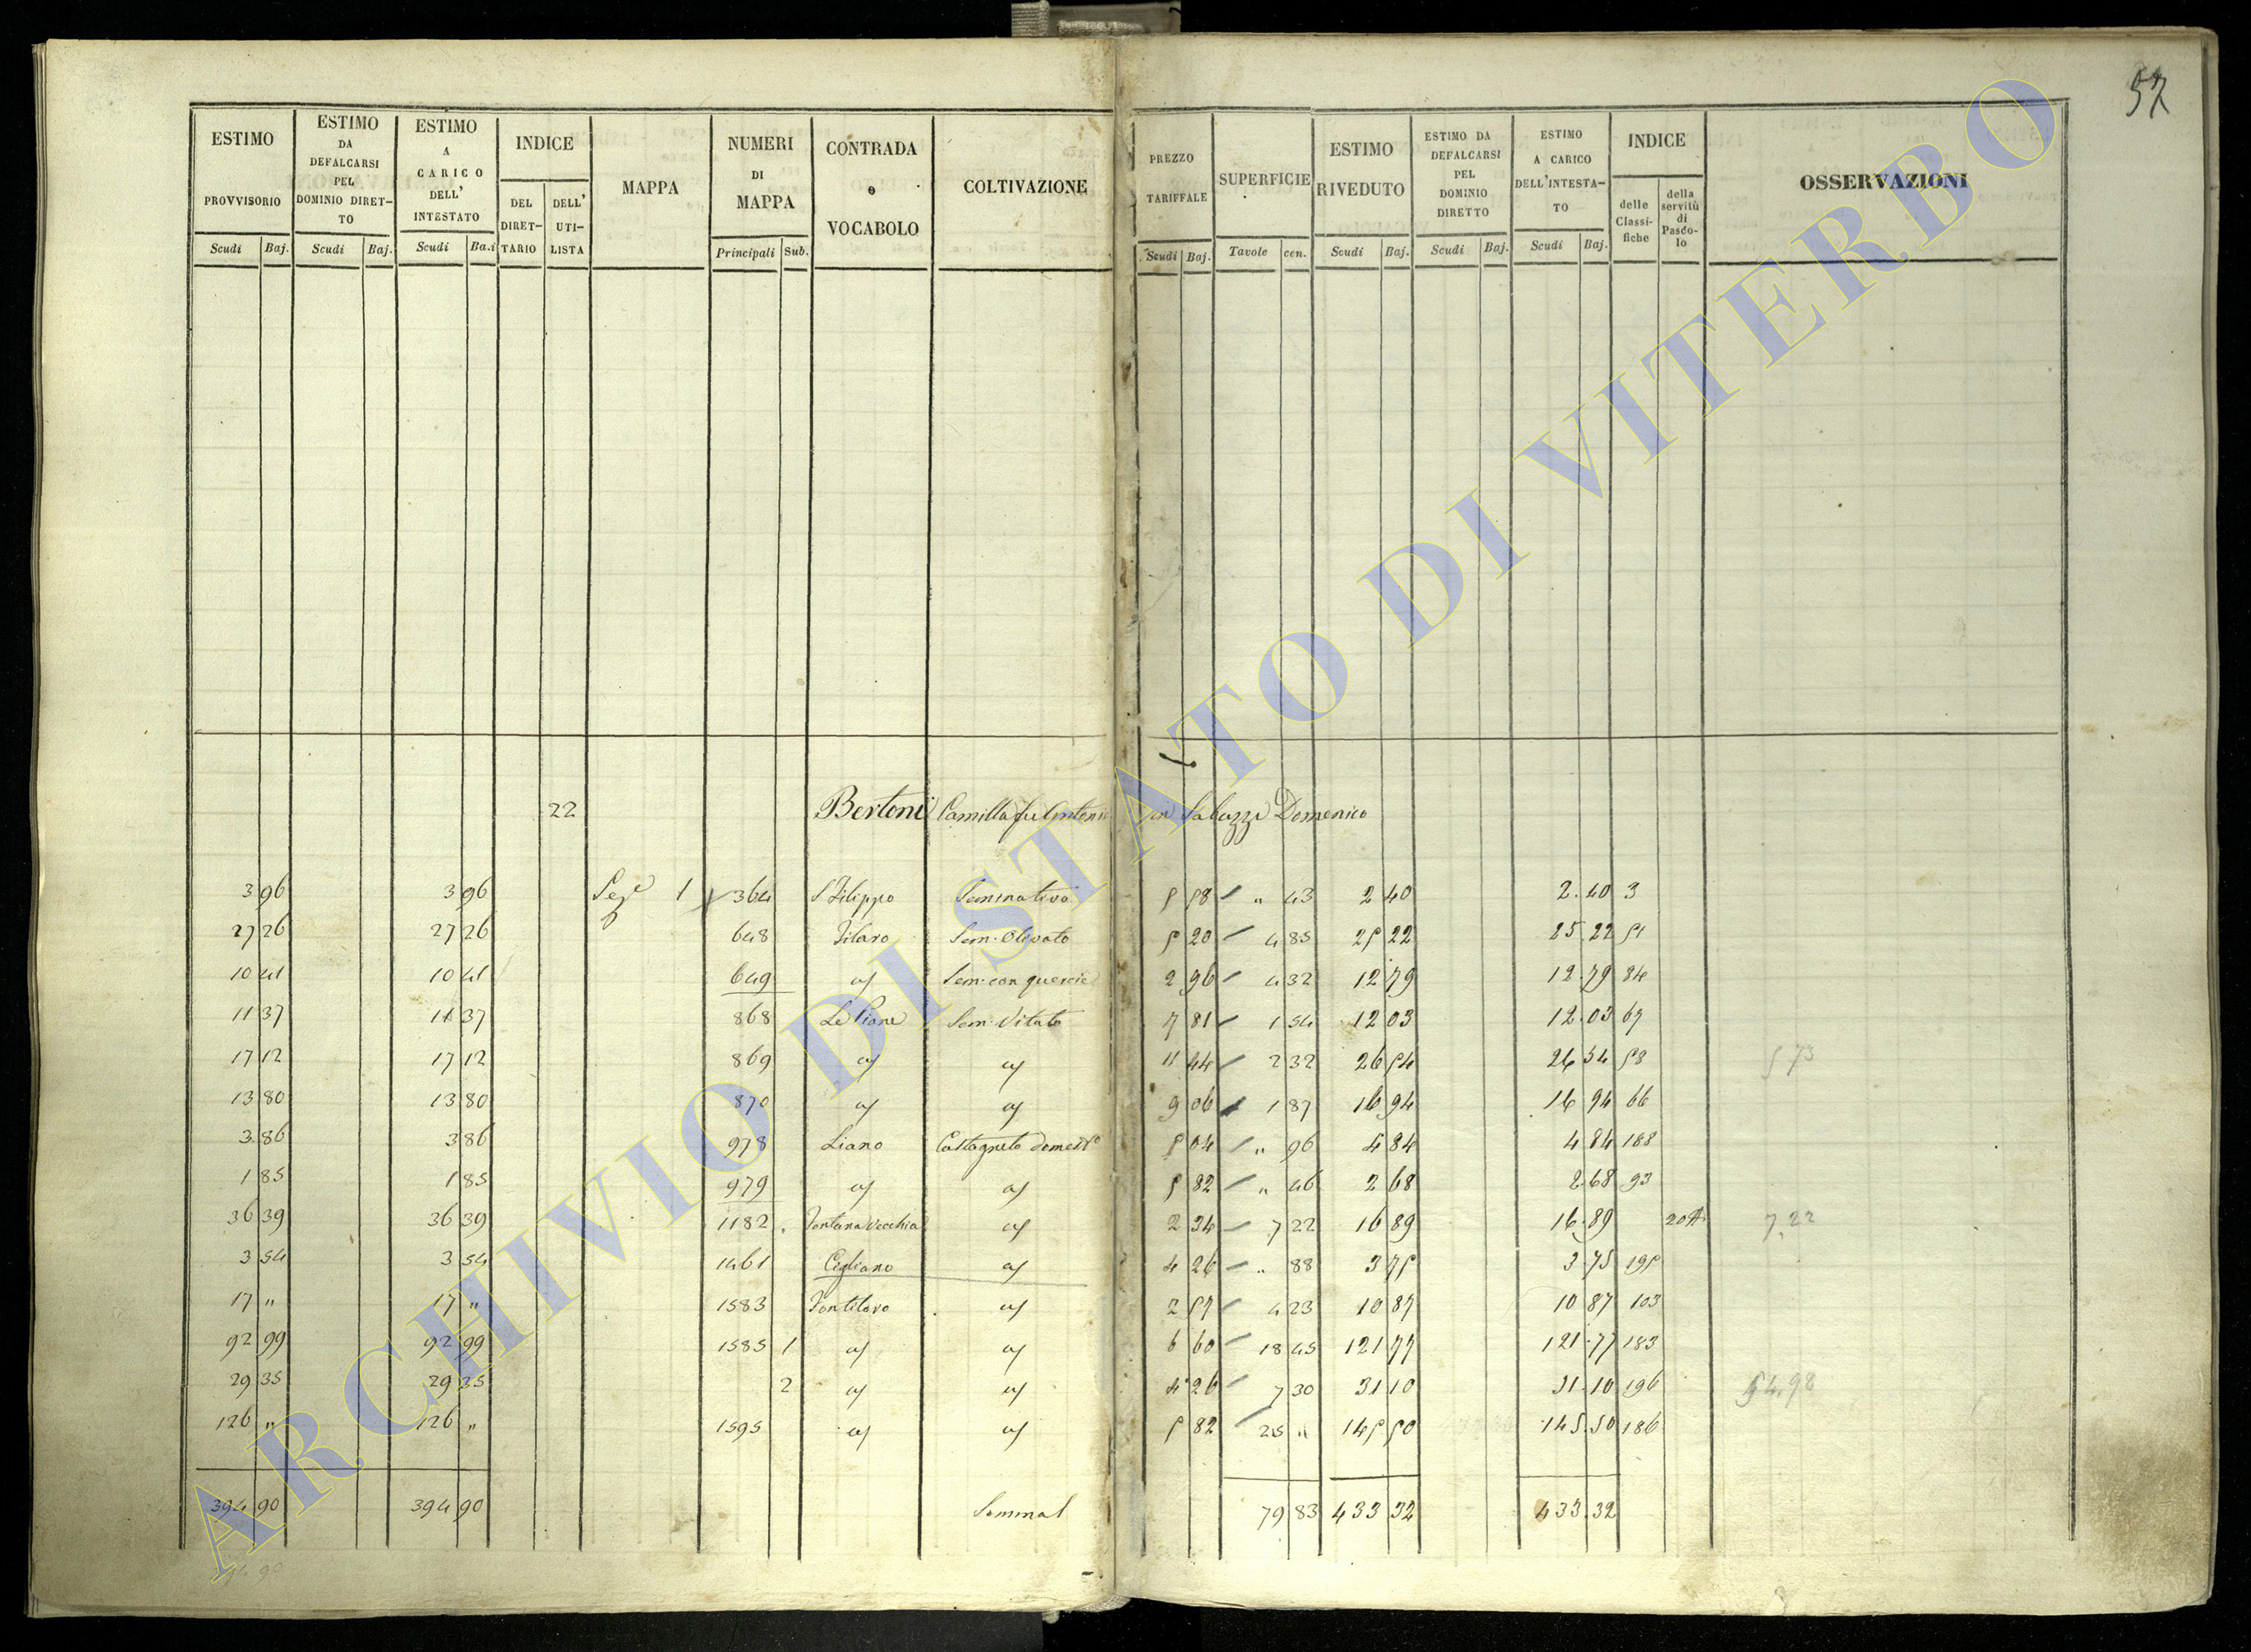 57
ESTIMO PROVVISORIO Scudi Baj.
ESTIMO DA DEFALCARSI PEL DOMINIO DIRETTO Scudi Baj.
ESTIMO A CARICO DELL' INTESTATO Scudi Ba.i
INDICE DEL DIRETTARIO DELL' UTILISTA
MAPPA
NUMERI DI MAPPA Principali Sub.
CONTRADA o VOCABOLO
COLTIVAZIONE
PREZZO TARIFFALE Scudi Baj.
SUPERFICIE Tavole cen.
ESTIMO RIVEDUTO Scudi Baj.
ESTIMO DA DEFALCARSI PEL DOMINIO DIRETTO Scudi Baj.
ESTIMO A CARICO DELL'INTESTATO Scudi Baj.
INDICE delle Classifiche della servitù di Pascolo
OSSERVAZIONI
22 Bertoni Camilla fu Antonio in Saluzzi Domenico
3 96 3 96 Sez.e 1 364 S Filippo Seminativo 5 58 " 43 2 40 2.40 3
27 26 27 26 648 Filaro Sem. Olivato 5 20 4 85 25 22 25.22 51
10 41 10 41 649 Sem. con quercie 2 96 4 32 12 79 12.79 84
11 37 11 37 868 Le Piane Sem. Vitato 7 81 1 54 12 03 12.03 67
17 12 17 12 869 11 44 2 32 26 54 26 54 58 5 73
13 80 13 80 870 9 06 1 87 16 94 16 94 66
3 86 3 86 978 Liano Castagneto domest.o 5 04 " 96 4 84 4 84 188
1 85 1 85 979 5 82 " 46 2 68 2.68 93
36 39 36 39 1182 Fontana Vecchia 2 34 7 22 16 89 16.89 7.22
3 54 3 54 1461 Cegliano 4 26 " 88 3 75 3 75 195
17 " 17 " 1583 Fontiloro 2 57 4 23 10 87 10 87 103
92 99 92 99 1585 1 6 60 18 45 121 77 121.77 183
29 35 29 35 2 4 26 7 30 31 10 31.10 196 54.98
126 " 126 " 1595 5 82 25 " 145 50 145.50 186
394 90 394 90 Somma 79 83 433 32 433.32
ARCHIVIO DI STATO DI VITERBO